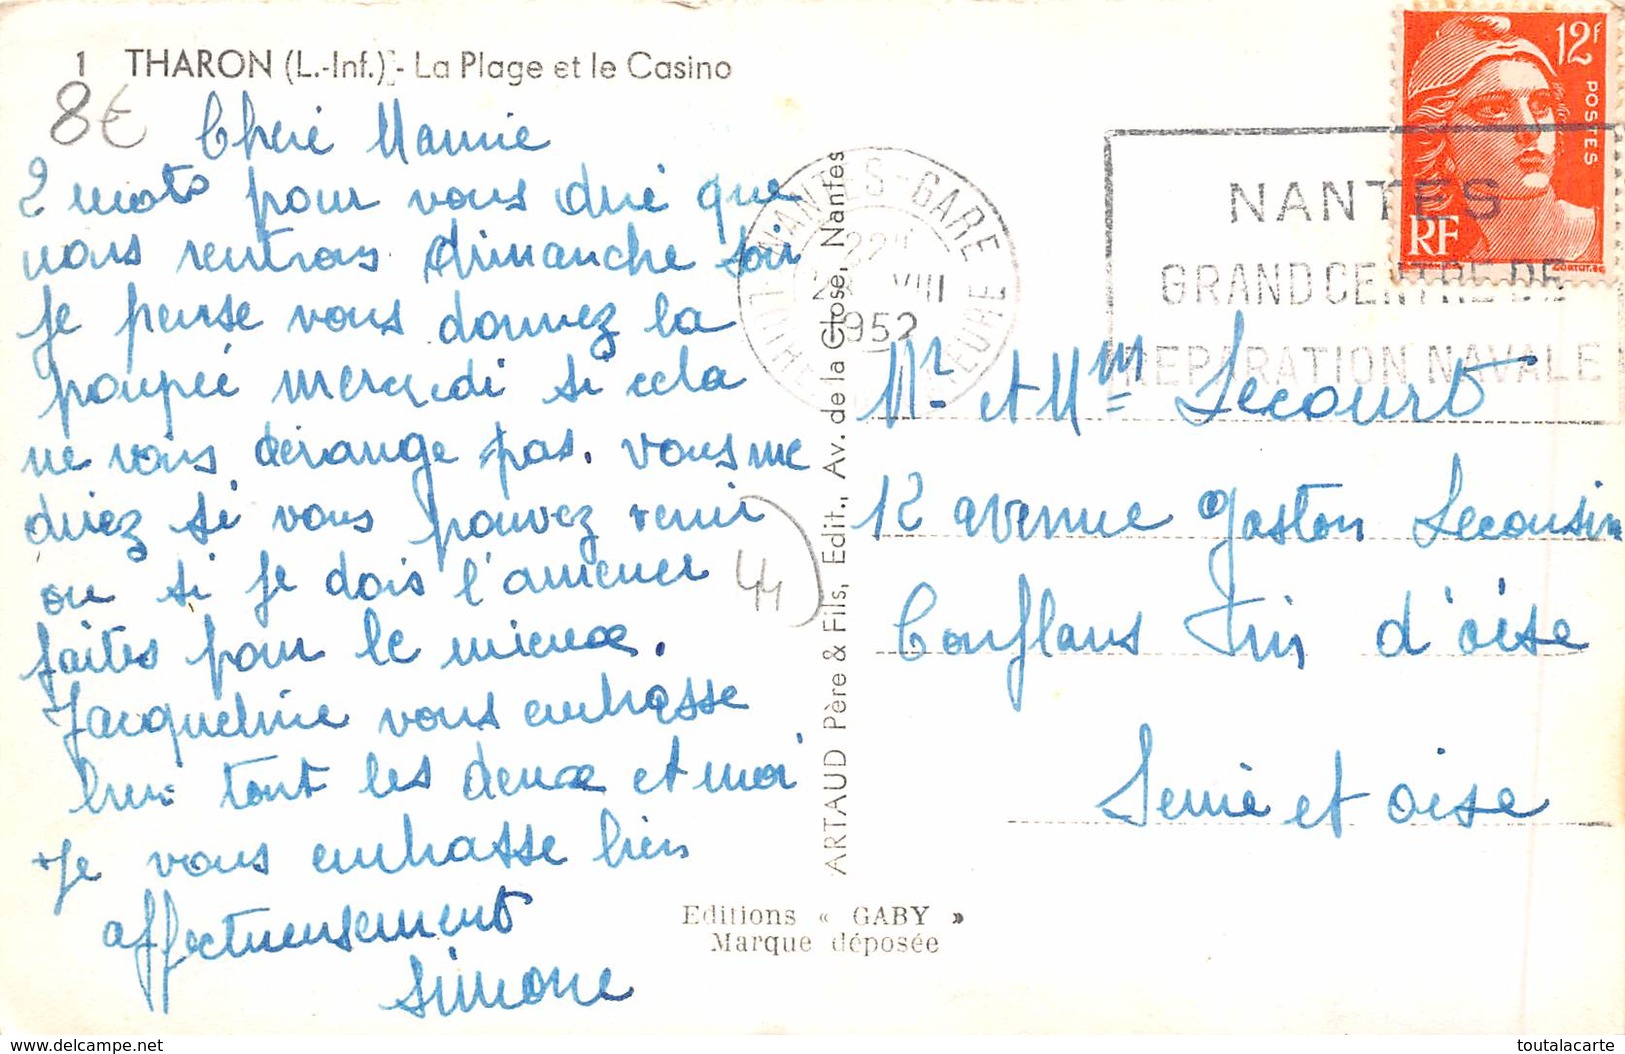 1 THARON (L.-Inf.) - La Plage et le Casino
8€
Cheré Mamie
2 mots pour vous diré que
nous rentrons dimanche soir
je pense vous donnez la
poupéé mercredi si cela
ne vous dérange pas. vous me
direz si vous pouvez venir
ou si je dois l'amener
faites pour le mieux.
Jacqueline vous embrasse
bien tout les deux et moi
Je vous embrasse bien
affectueusement
Simone
44
ARTAUD Père & Fils, Edit., Av. de la Close, Nantes
Editions « GABY »
Marque déposée
NANTES-GARE
22H
VIII
1952
LOIRE INFERIEURE
NANTES
GRAND CENTRE DE
REPARATION NAVALE
12F
POSTES
RF
Mr et Mme Lecourt
12 avenue Gaston Lecousin
Conflans Fin d'oise
Seine et oise
delcampe.net
toutalacarte